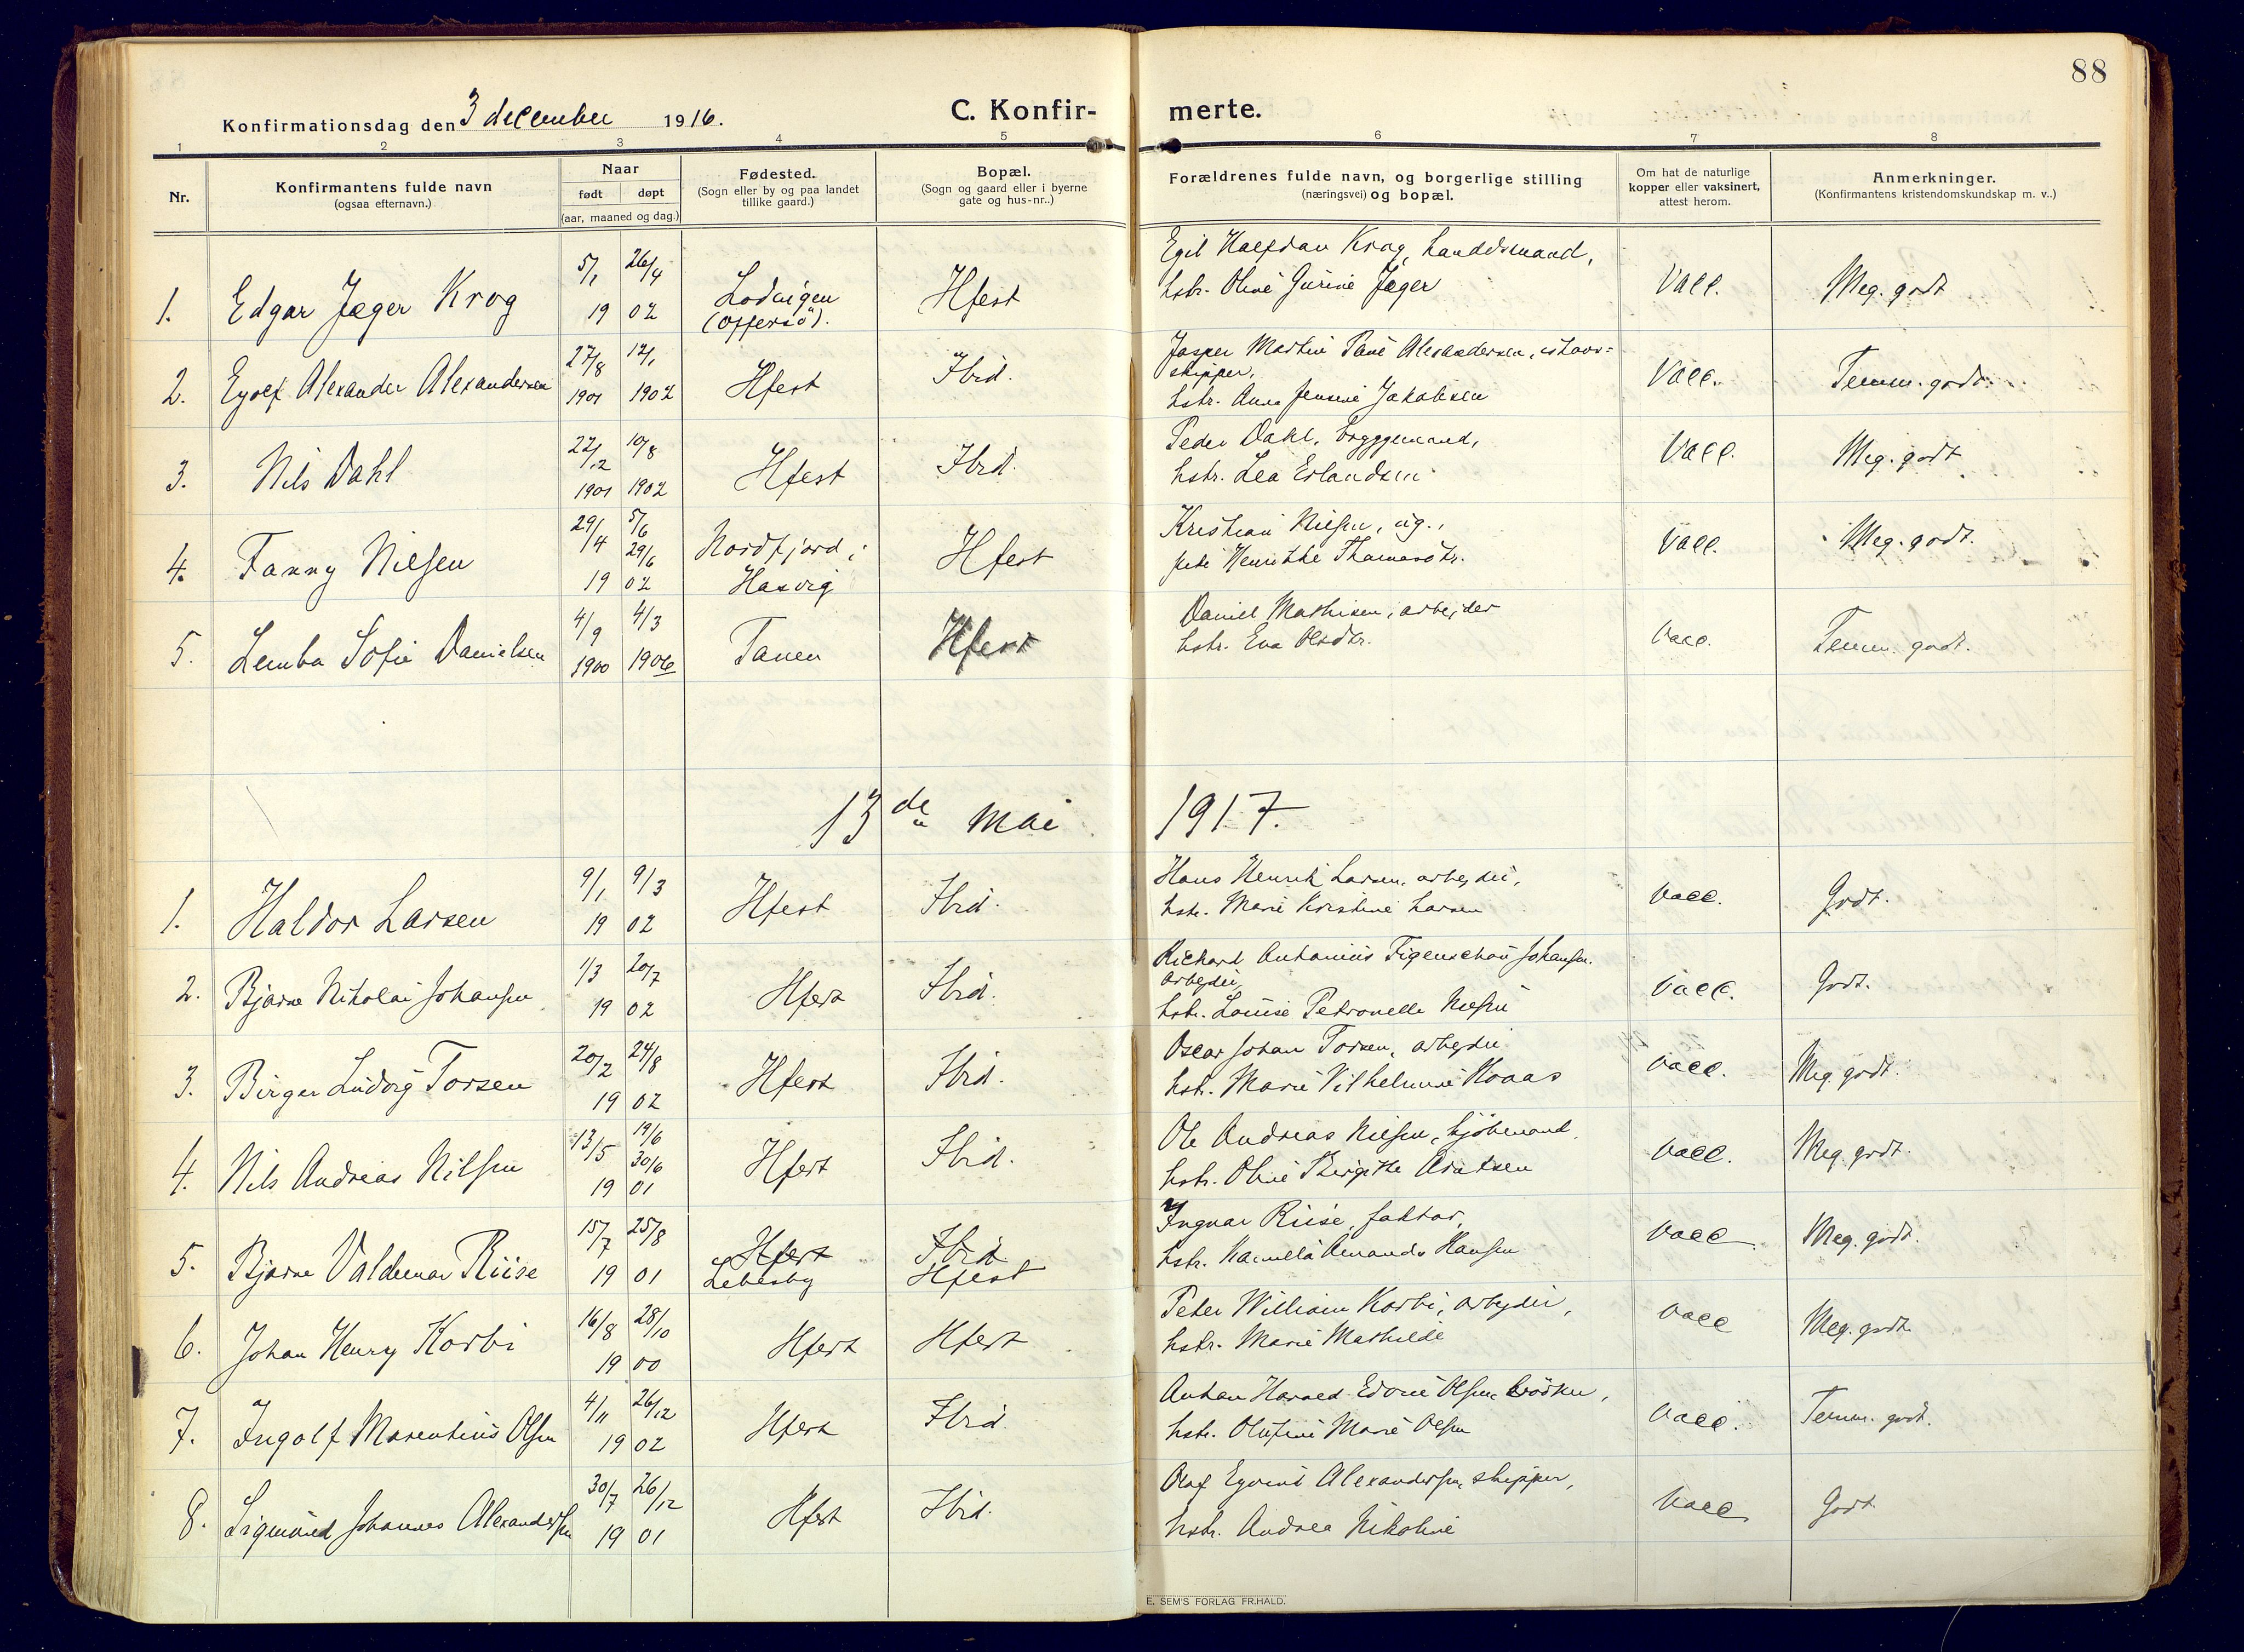 88
Konfirmationsdag den 3 december 1916.
C. Konfir-merte.
1 2 3 4 5 6 7 8
Nr.
Konfirmantens fulde navn
(ogsaa efternavn.)
Naar
født døpt
(aar, maaned og dag.)
Fødested.
(Sogn eller by og paa landet
tillike gaard.)
Bopæl.
(Sogn og gaard eller i byerne
gate og hus-nr..)
Forældrenes fulde navn, og borgerlige stilling
(næringsvei) og bopæl.
Om hat de naturlige
kopper eller vaksinert,
attest herom.
Anmerkninger.
(Konfirmantens kristendomskundskap m. v..)
1. Edgar Jæger Krog 5/1 26/4 19 02 Lødingen (Offersø). Hfest
Egil Halfdan Krog, handelsmand,
hstr. Oline Gurine Jæger
Vacc. Meg. godt
2. Eyolf Alexander Alexandersen 27/8 1901 12/1 1902 Hfest Ibid.
Jasper Martin Alexandersen,
skipper,
hstr. Anna Jensine Jakobsen
Vacc. Temm. godt.
3. Nils Dahl 22/12 1901 10/8 1902 Hfest Ibid.
Peder Dahl, bryggemand,
hstr. Lea Erlandsen
Vacc. Meg. godt
4. Fanny Nilsen 29/4 5/6 29/6 19 02 Nordfjord i Hasvig Hfest
Kristian Nilsen, ug.,
pike Henrikke Thomasdtr.
Vacc. Meg. godt.
5. Lemba Sofie Danielsen 4/9 1900 4/3 1906 Tanen Hfest
Daniel Mathisen, arbejder
hstr. Eva Olsdtr.
Vacc. Temm. godt.
13de Mai 1917.
1. Haldor Larsen 9/1 9/3 19 02 Hfest Ibid.
Hans Henrik Larsen, arbejder,
hstr. Marie Kristine Larsen
Vacc. Godt.
2. Bjarne Nikolai Johansen 1/3 20/7 19 02 Hfest Ibid.
Richard Antonius Figenschou Johansen.
arbejder,
hstr. Louise Petronelle Nilsen
Vacc. Godt.
3. Birger Ludvig Torsen 20/2 24/8 19 02 Hfest Ibid.
Oscar Johan Torsen, arbejder
hstr. Marie Vilhelmine Kraas
Vacc. Meg. godt.
4. Nils Andreas Nilsen 13/5 19/6 30/6 19 01 Hfest Ibid.
Ole Andreas Nilsen, kjøbmand,
hstr. Oline Birgitte
Vacc. Meg. godt.
5. Bjarne Valdemar Riise 15/7 25/8 19 01 Hfest Lebesby Ibid Hfest
Ingvar Riise, faktor,
hstr. Kamella Amanda Hansen
Vacc Meg. godt.
6. Johan Henry Korbi 16/8 28/10 19 00 Hfest Hfest
Peter William Korbi, arbejder,
hstr. Marie Mathilde
Vacc Meg. godt.
7. Ingolf Marentius Olsen 4/11 26/12 19 02 Hfest Ibid.
Anton Harald Edvin Olsen,
hstr. Olufine Marie Olsen
Vacc. Temm. godt.
8. Sigmund Johannes Alexandersen 30/7 26/12 19 01 Hfest Ibid.
Olaf Eyvind Alexandersen, skipper,
hstr. Andrea Nikoline
Vacc Godt.
E. SEM'S FORLAG FR.HALD.